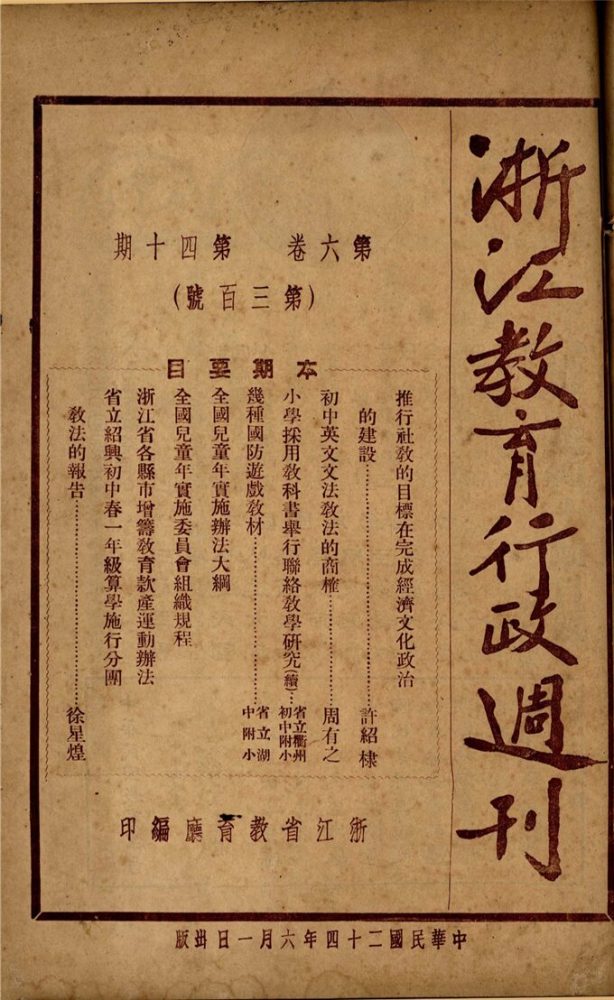 浙江教育行政週刊
第六卷 第四十期
(第三百號)
本期要目
推行社教的目標在完成經濟文化政治
的建設……許紹棣
初中英文文法教法的商榷……周有之
小學採用教科書舉行聯絡教學研究(續)……省立衢州初中附小
幾種國防遊戲教材……省立湖中附小
全國兒童年實施辦法大綱
全國兒童年實施委員會組織規程
浙江省各縣市增籌教育款產運動辦法
省立紹興初中春一年級算學施行分團
教法的報告……徐星煌
浙江省教育廳編印
中華民國二十四年六月一日出版